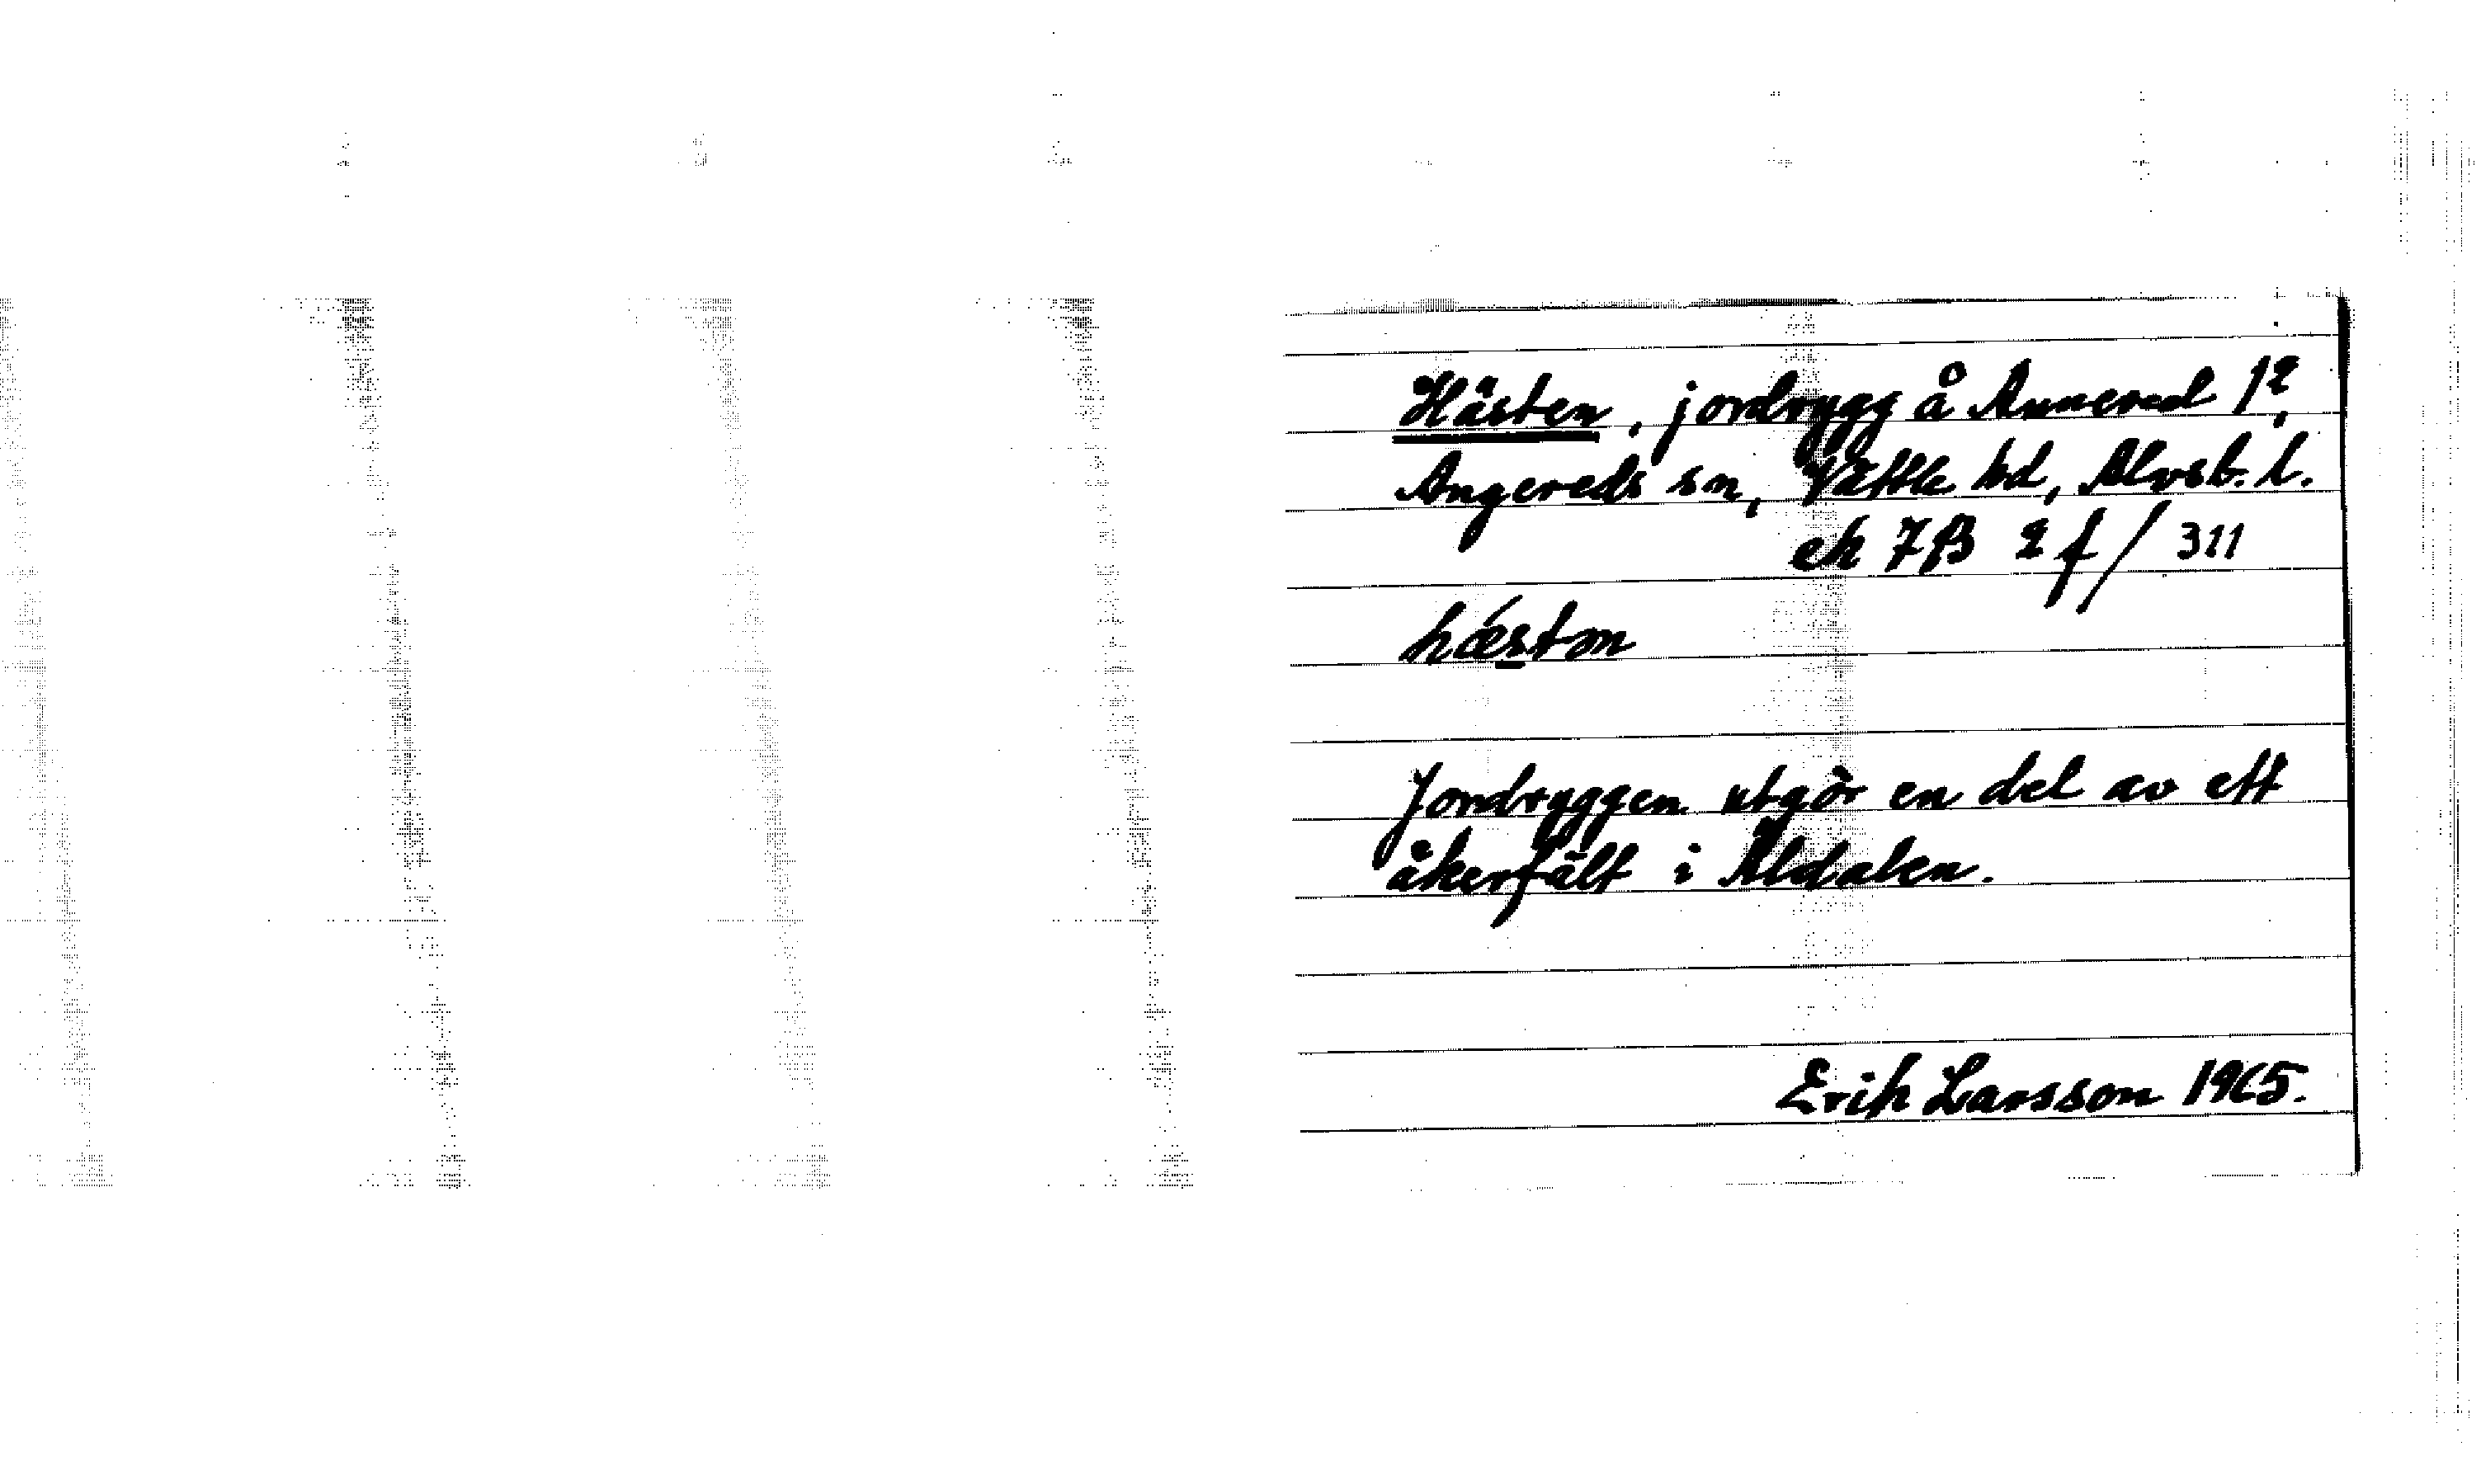 Hästen, jordrygg å Annered 1²,
Angereds sn, Vättle hd, Älvsb. l.
ek 7B 2f/311
hǽstən
Jordryggen utgör en del av ett
åkerfält i Åldalen.
Erik Larsson 1965.